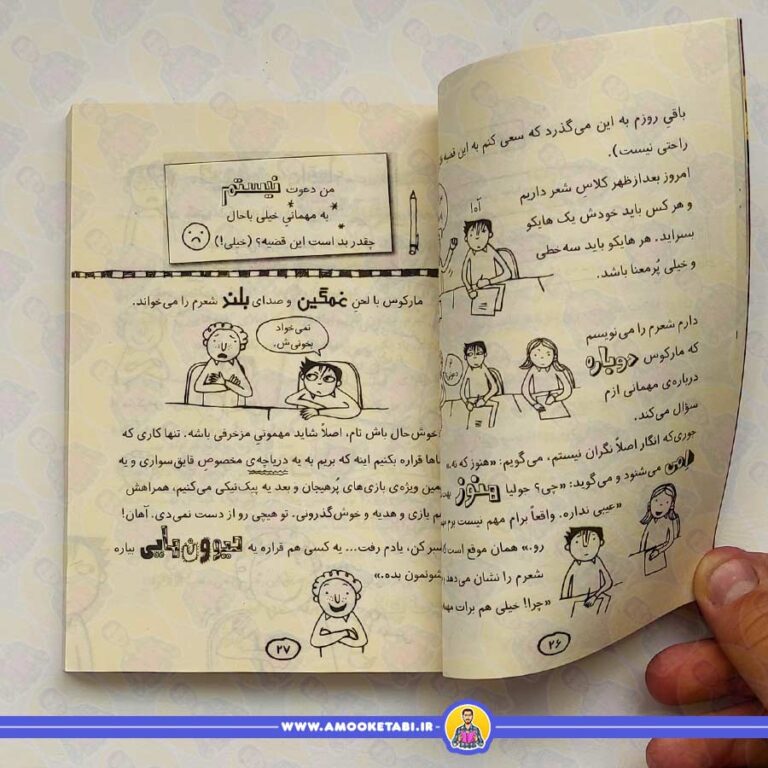 باقیِ روزم به این می‌گذرد که سعی کنم به این قضیه
راحتی نیست).
امروز بعدازظهر کلاسِ شعر داریم
و هر کس باید خودش یک هایکو
بسراید. هر هایکو باید سه‌خطی
و خیلی پُرمعنا باشد.
آه!
دارم شعرم را می‌نویسم
که مارکوس دوباره
درباره‌ی مهمانی ازم
سؤال می‌کند.
جوری‌که انگار اصلاً نگران نیستم، می‌گویم: «هنوز که نه.»
اِمی می‌شنود و می‌گوید: «چی؟ جولیا هنوز
«عیبی نداره. واقعاً برام مهم نیست
رو.» همان موقع است
شعرم را نشان می‌دهد
«چرا! خیلی هم برات
۲۶
من دعوت نیستم
به مهمانیِ خیلی باحال
چقدر بد است این قضیه؟ (خیلی!)
مارکوس با لحنِ غمگین و صدای بلند شعرم را می‌خواند.
نمی‌خواد
بخونی‌ش.
خوش‌حال باش تام، اصلاً شاید مهمونیِ مزخرفی باشه. تنها کاری که
ماها قراره بکنیم اینه که بریم به یه دریاچه‌ی مخصوص قایق‌سواری و یه
زمین ویژه‌ی بازی‌های پُرهیجان و بعد یه پیک‌نیکی می‌کنیم، همراهش
هم بازی و هدیه و خوش‌گذرونی. تو هیچی رو از دست نمی‌دی. آهان!
صبر کن، یادم رفت... یه کسی هم قراره یه حیوون‌هایی بیاره
نشونمون بده.»
۲۷
WWW.AMOOKETABI.IR